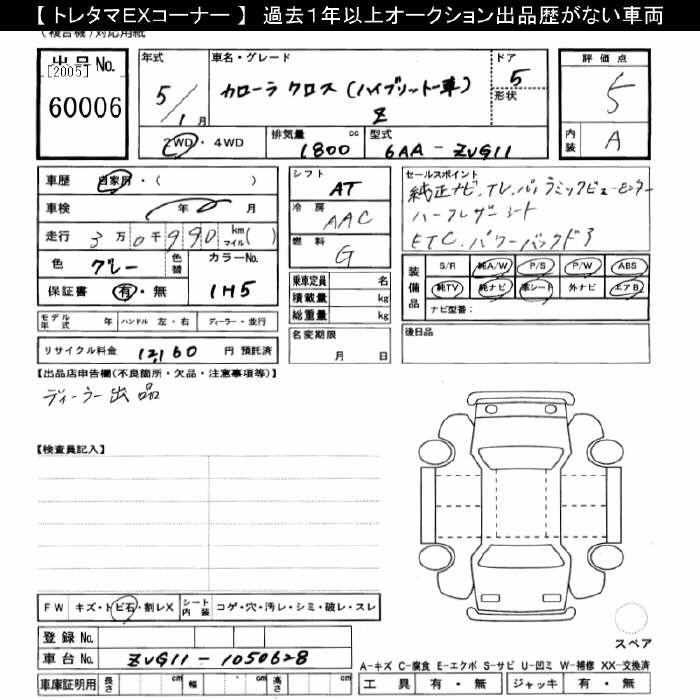 【 トレタマEXコーナー 】 過去１年以上オークション出品歴がない車両
(複合機)対応用紙
出品No.
[2005]
60006
年式
5/1月
車名・グレード
カローラ クロス (ハイブリット車)
Z
ドア
5
形状
評価点
5
内装
A
2WD・4WD
排気量
cc
1800
型式
6AA-ZVG11
車歴 自家用・( )
車検 年 月
走行 3万0千990 km マイル( )
色 グレー 色替 カラーNo.
保証書 有・無 1H5
モデル年式 年 ハンドル 左・右 ディーラー・並行
リサイクル料金 12,160 円 預託済
シフト AT
冷房 AAC
燃料 G
乗車定員 名
積載量 kg
総重量 kg
名変期限
月 日
セールスポイント
純正ナビ、TV、パノラミックビューモニター
ハーフレザーシート
ETC、パワーバックドア
装備品
S/R 純A/W P/S P/W ABS
純TV 純ナビ 革シート 外ナビ エアB
ナビ型番:
後日品
【出品店申告欄(不良箇所・欠品・注意事項等)】
ディーラー出品
【検査員記入】
FW キズ・トビ石・割レX シート内装 コゲ・穴・汚レ・シミ・破レ・スレ
登録 No.
車台 No. ZVG11-1050628
車庫証明用 長さ cm 幅 cm 高さ cm
スペア
A-キズ C-腐食 E-エクボ S-サビ U-凹ミ W-補修 XX-交換済
工具 有・無 ジャッキ 有・無